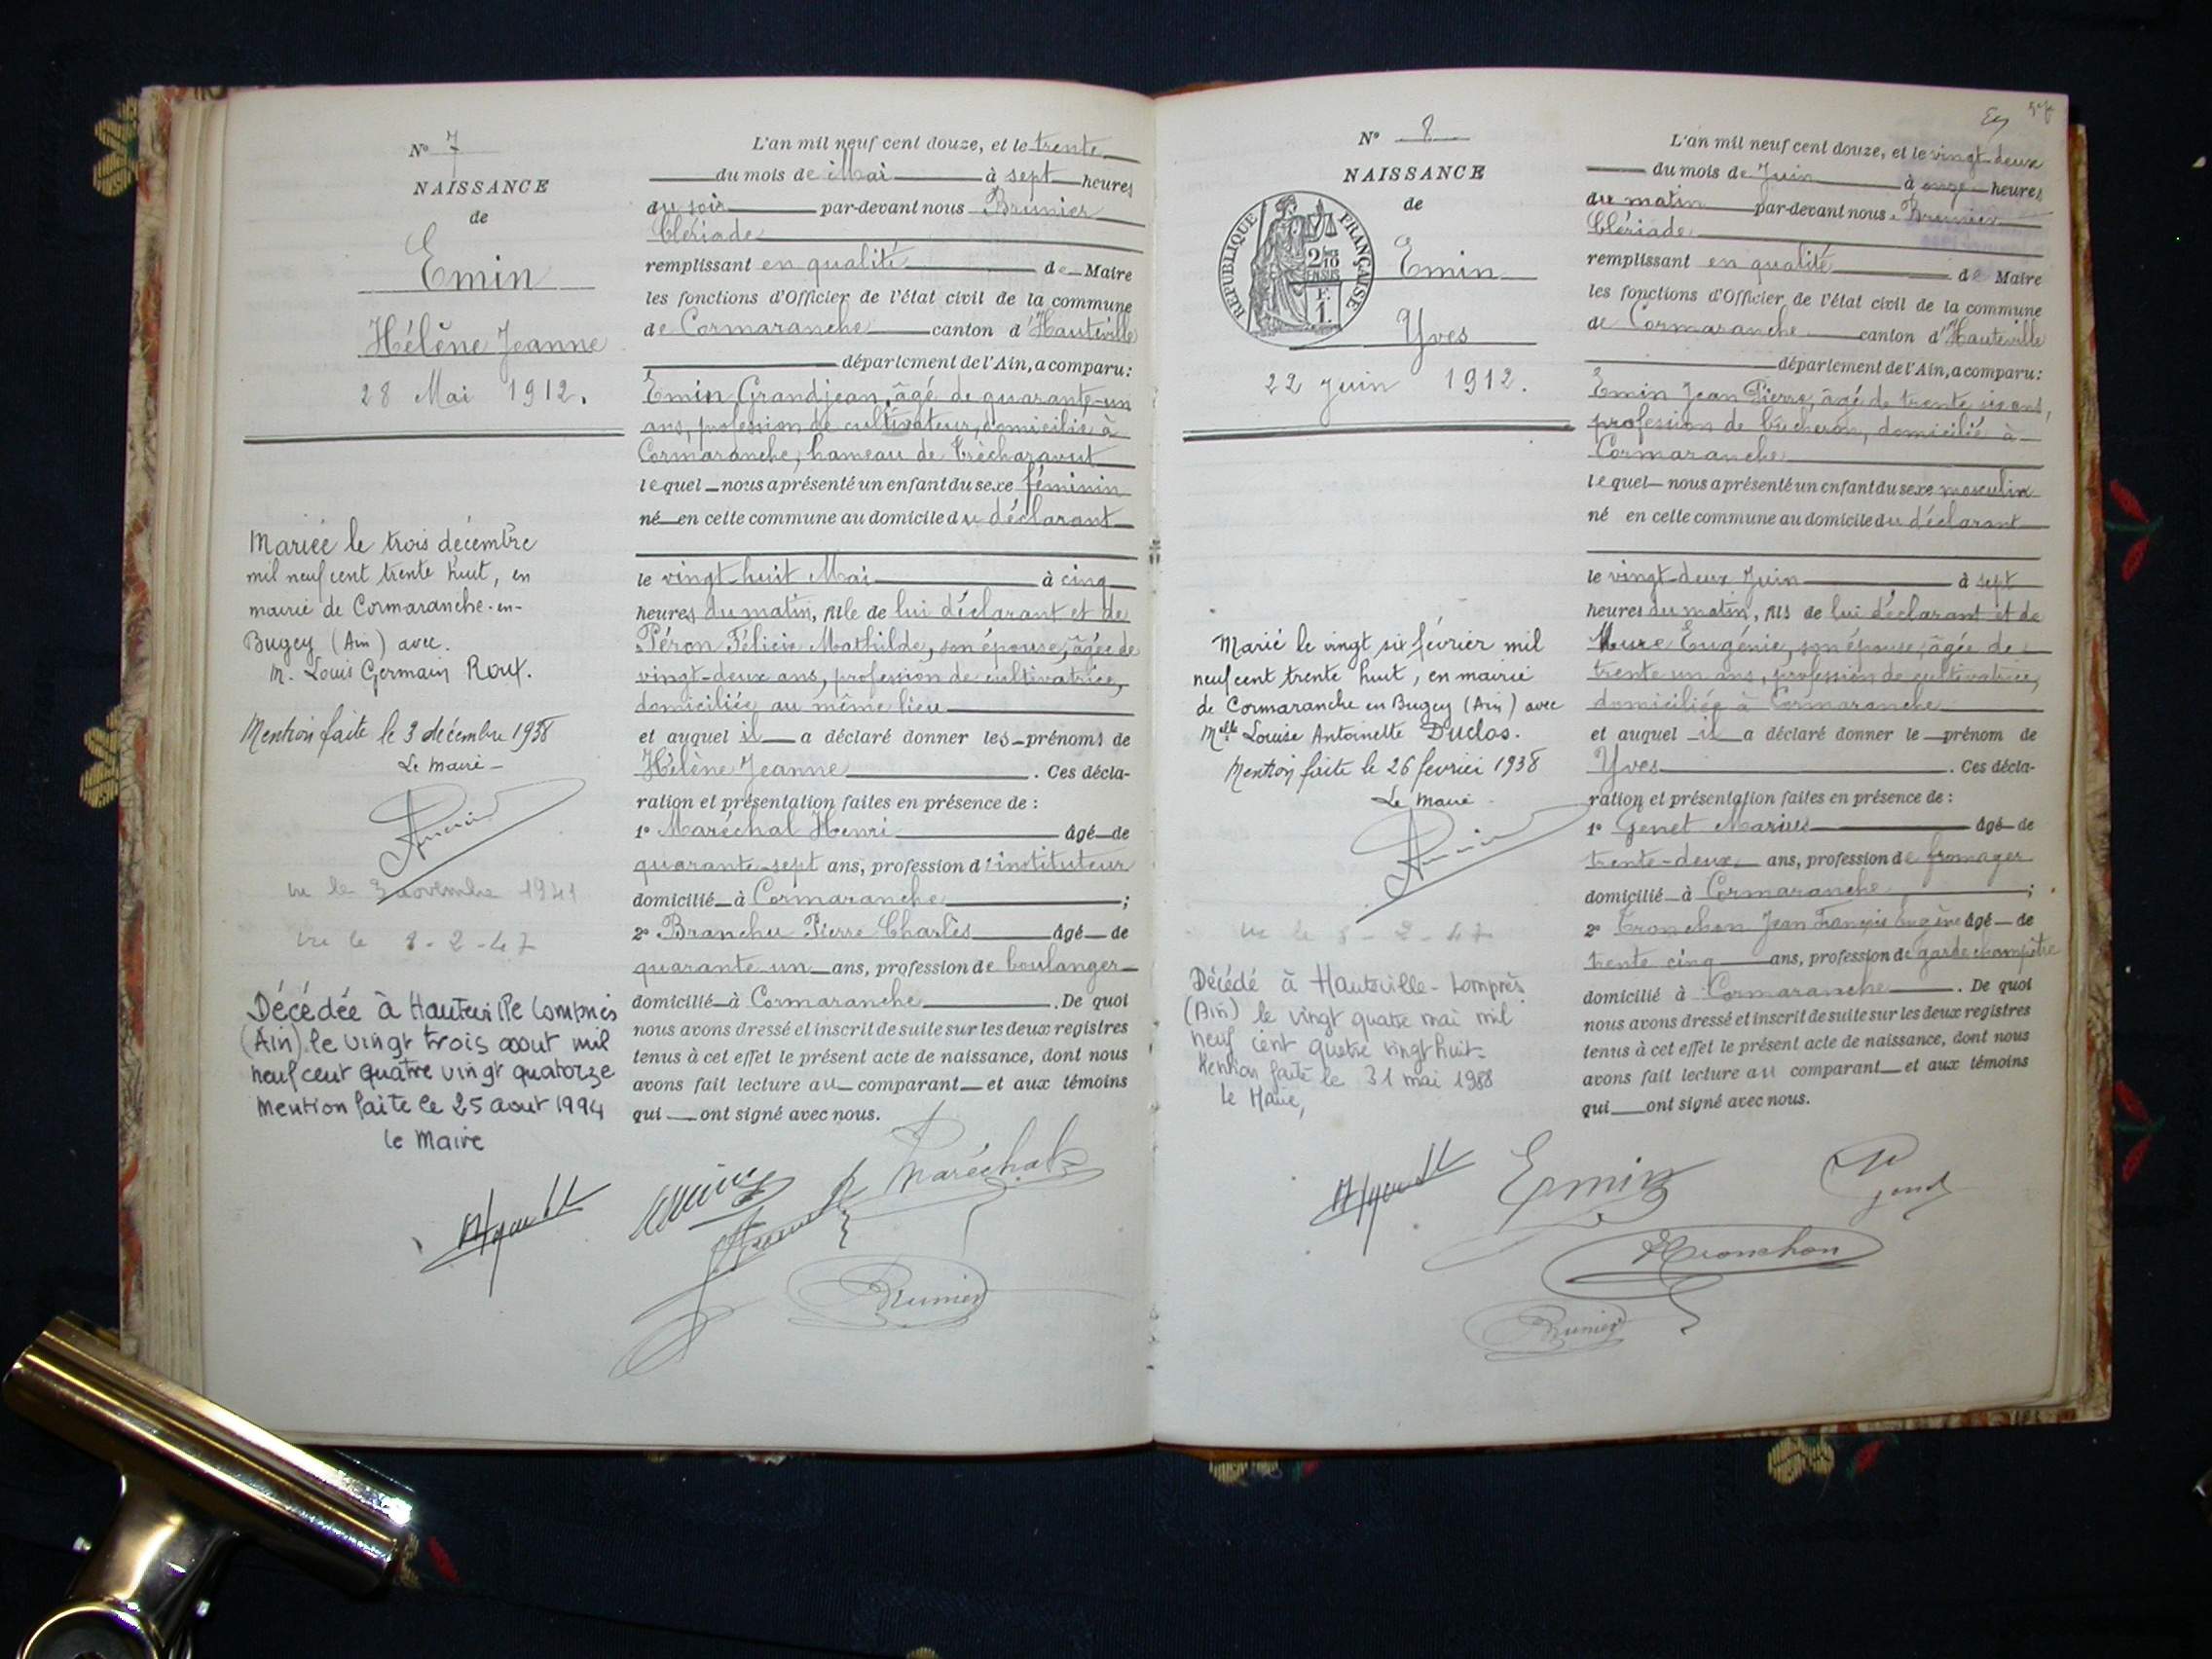 N° 7
NAISSANCE
de
Emin
Hélène Jeanne
28 Mai 1912.
Mariée le trois décembre
mil neuf cent trente huit, en
mairie de Cormaranche-en-
Bugey (Ain) avec
M. Louis Germain Roux.
Mention faite le 3 décembre 1938
Le maire
vu le 3 novembre 1941
vu le 8-2-47
Décédée à Hauteville Lompnès
(Ain) le vingt trois aout mil
neuf cent quatre vingt quatorze
Mention faite le 25 aout 1994
le Maire
L'an mil neuf cent douze, et le trente
du mois de Mai à sept heures
du soir par-devant nous Brunier
Clériade
remplissant en qualité de Maire
les fonctions d'Officier de l'état civil de la commune
de Cormaranche canton d'Hauteville
département de l'Ain, a comparu:
Emin Grandjean, âgé de quarante-un
ans, profession de cultivateur, domicilié à
Cormaranche, hameau de
lequel nous a présenté un enfant du sexe féminin
né en cette commune au domicile du déclarant
le vingt-huit Mai à cinq
heures du matin, fille de lui déclarant et de
Péron Félicie Mathilde, son épouse, âgée de
vingt-deux ans, profession de cultivatrice,
domiciliée au même lieu
et auquel il a déclaré donner les prénoms de
Hélène Jeanne. Ces décla-
ration et présentation faites en présence de :
1° Maréchal Henri âgé de
quarante-sept ans, profession d'instituteur
domicilié à Cormaranche ;
2° Branchu Pierre Charles âgé de
quarante un ans, profession de boulanger
domicilié à Cormaranche. De quoi
nous avons dressé et inscrit de suite sur les deux registres
tenus à cet effet le présent acte de naissance, dont nous
avons fait lecture au comparant et aux témoins
qui ont signé avec nous.
Maréchal
Brunier
N° 8
NAISSANCE
de
REPUBLIQUE FRANÇAISE
2/10
EN SUS
Emin
Yves
22 Juin 1912.
Marié le vingt six février mil
neuf cent trente huit, en mairie
de Cormaranche en Bugey (Ain) avec
Melle Louise Antoinette Duclos.
Mention faite le 26 fevrier 1938
Le maire
vu le 8-2-47
Décédé à Hauteville-Lompnès
(Ain) le vingt quatre mai mil
neuf cent quatre vingt huit.
Mention faite le 31 mai 1988
Le Maire,
L'an mil neuf cent douze, et le vingt-deux
du mois de Juin à onze heures
du matin par-devant nous Brunier
Clériade
remplissant en qualité de Maire
les fonctions d'Officier de l'état civil de la commune
de Cormaranche canton d'Hauteville
département de l'Ain, a comparu:
Emin Jean Pierre, âgé de trente six ans,
profession de bûcheron, domicilié à
Cormaranche
lequel nous a présenté un enfant du sexe masculin
né en cette commune au domicile du déclarant
le vingt-deux Juin à sept
heures du matin, fils de lui déclarant et de
Eugénie, son épouse, âgée de
trente un ans, profession de cultivatrice,
domiciliée à Cormaranche
et auquel il a déclaré donner le prénom de
Yves. Ces décla-
ration et présentation faites en présence de :
1° Genet Marius âgé de
trente-deux ans, profession de fromager
domicilié à Cormaranche ;
2° Tronchon Jean François Eugène âgé de
trente cinq ans, profession de garde champêtre
domicilié à Cormaranche. De quoi
nous avons dressé et inscrit de suite sur les deux registres
tenus à cet effet le présent acte de naissance, dont nous
avons fait lecture au comparant et aux témoins
qui ont signé avec nous.
Emin
Tronchon
Brunier